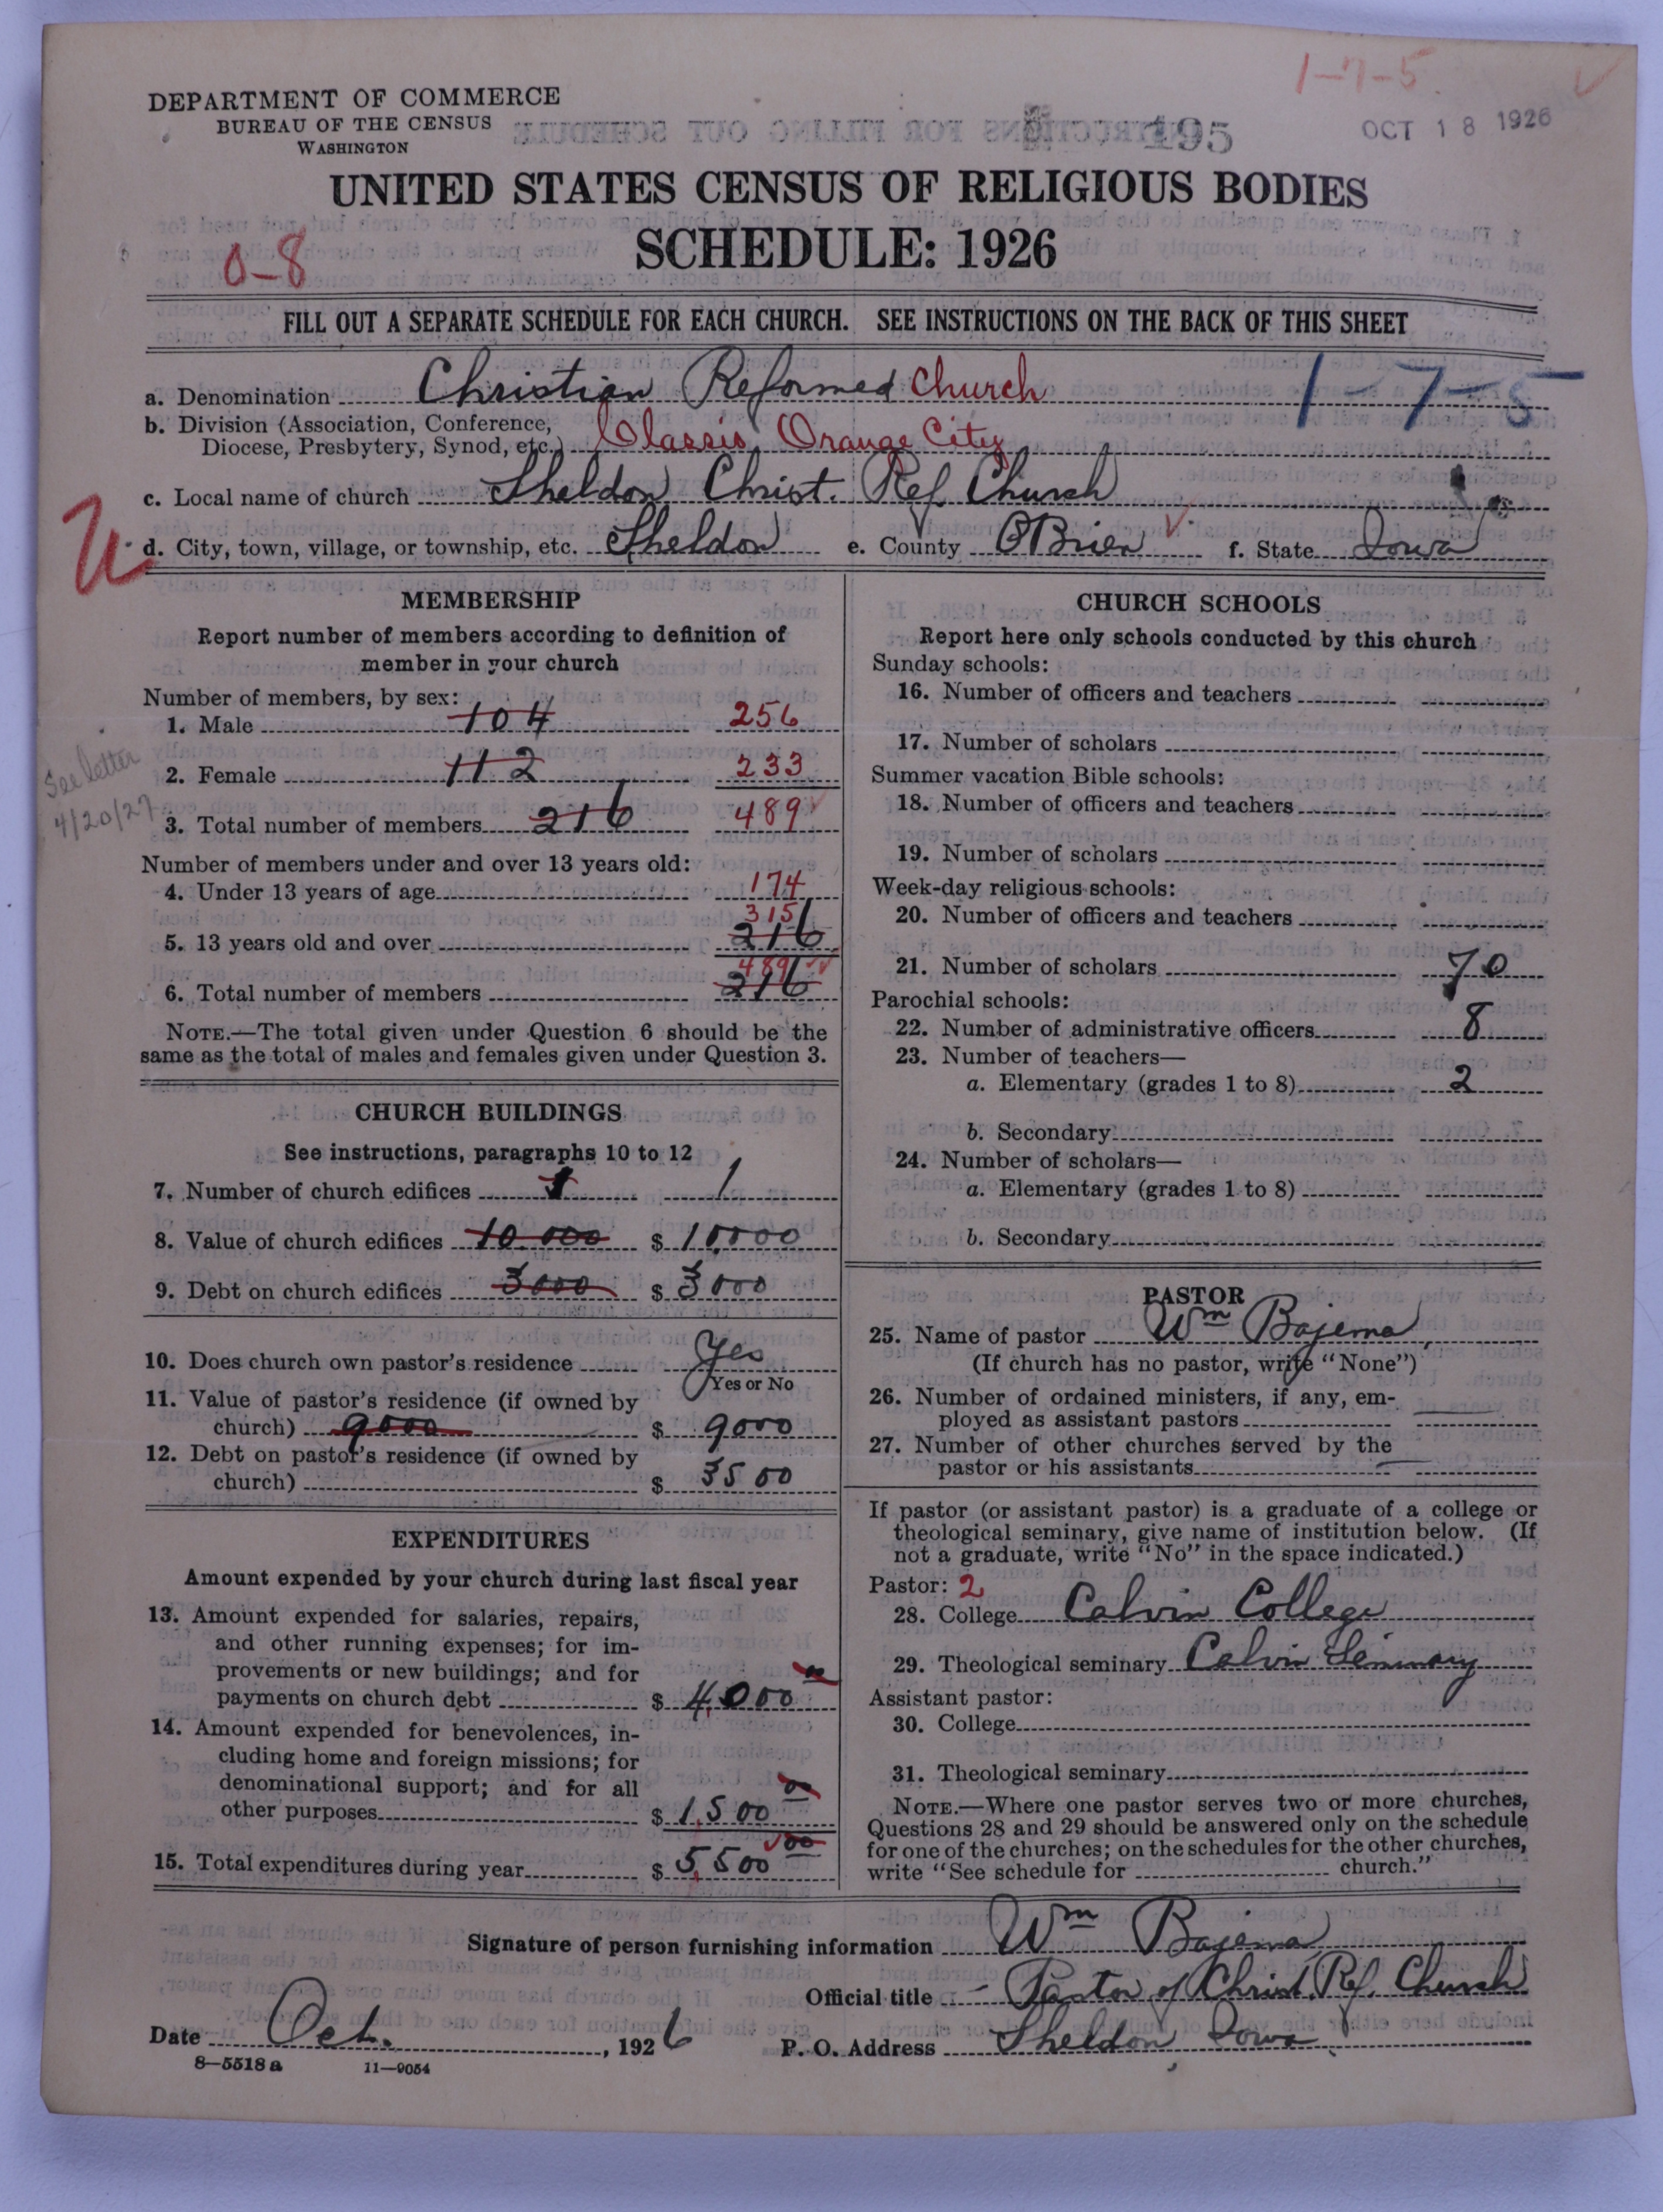 1-7-5
DEPARTMENT OF COMMERCE
BUREAU OF THE CENSUS
WASHINGTON
195
OCT 18 1926
UNITED STATES CENSUS OF RELIGIOUS BODIES
SCHEDULE: 1926
0-8
FILL OUT A SEPARATE SCHEDULE FOR EACH CHURCH. SEE INSTRUCTIONS ON THE BACK OF THIS SHEET
a. Denomination Christian Reformed Church 1-7-5
b. Division (Association, Conference,
Diocese, Presbytery, Synod, etc.) Classis Orange City
c. Local name of church Sheldon Christ. Ref Church
d. City, town, village, or township, etc. Sheldon e. County O'Brien f. State Iowa
MEMBERSHIP
Report number of members according to definition of
member in your church
Number of members, by sex:
1. Male 104 256
2. Female 112 233
See letter
4/20/27
3. Total number of members 216 489
Number of members under and over 13 years old:
4. Under 13 years of age 174
315
5. 13 years old and over 216
489
6. Total number of members 216
NOTE.—The total given under Question 6 should be the
same as the total of males and females given under Question 3.
CHURCH BUILDINGS
See instructions, paragraphs 10 to 12
7. Number of church edifices 1 1
8. Value of church edifices 10.000 $ 10000
9. Debt on church edifices 3000 $ 3000
10. Does church own pastor's residence Yes
Yes or No
11. Value of pastor's residence (if owned by
church) 9000 $ 9000
12. Debt on pastor's residence (if owned by
church) $ 3500
EXPENDITURES
Amount expended by your church during last fiscal year
13. Amount expended for salaries, repairs,
and other running expenses; for im-
provements or new buildings; and for
payments on church debt $ 4,000 00
14. Amount expended for benevolences, in-
cluding home and foreign missions; for
denominational support; and for all
other purposes $ 1,500 00
15. Total expenditures during year $ 5,500 00
CHURCH SCHOOLS
Report here only schools conducted by this church
Sunday schools:
16. Number of officers and teachers
17. Number of scholars
Summer vacation Bible schools:
18. Number of officers and teachers
19. Number of scholars
Week-day religious schools:
20. Number of officers and teachers
21. Number of scholars 70
Parochial schools:
22. Number of administrative officers 8
23. Number of teachers—
a. Elementary (grades 1 to 8) 2
b. Secondary
24. Number of scholars—
a. Elementary (grades 1 to 8)
b. Secondary
PASTOR
25. Name of pastor Wm Bajema
(If church has no pastor, write "None")
26. Number of ordained ministers, if any, em-
ployed as assistant pastors
27. Number of other churches served by the
pastor or his assistants
If pastor (or assistant pastor) is a graduate of a college or
theological seminary, give name of institution below. (If
not a graduate, write "No" in the space indicated.)
Pastor: 2
28. College Calvin College
29. Theological seminary Calvin Seminary
Assistant pastor:
30. College
31. Theological seminary
NOTE.—Where one pastor serves two or more churches,
Questions 28 and 29 should be answered only on the schedule
for one of the churches; on the schedules for the other churches,
write "See schedule for church."
Signature of person furnishing information Wm Bajema
Official title Pastor of Christ. Ref. Church
Date Oct. , 1926 P. O. Address Sheldon Iowa
8—5518 a 11—9054